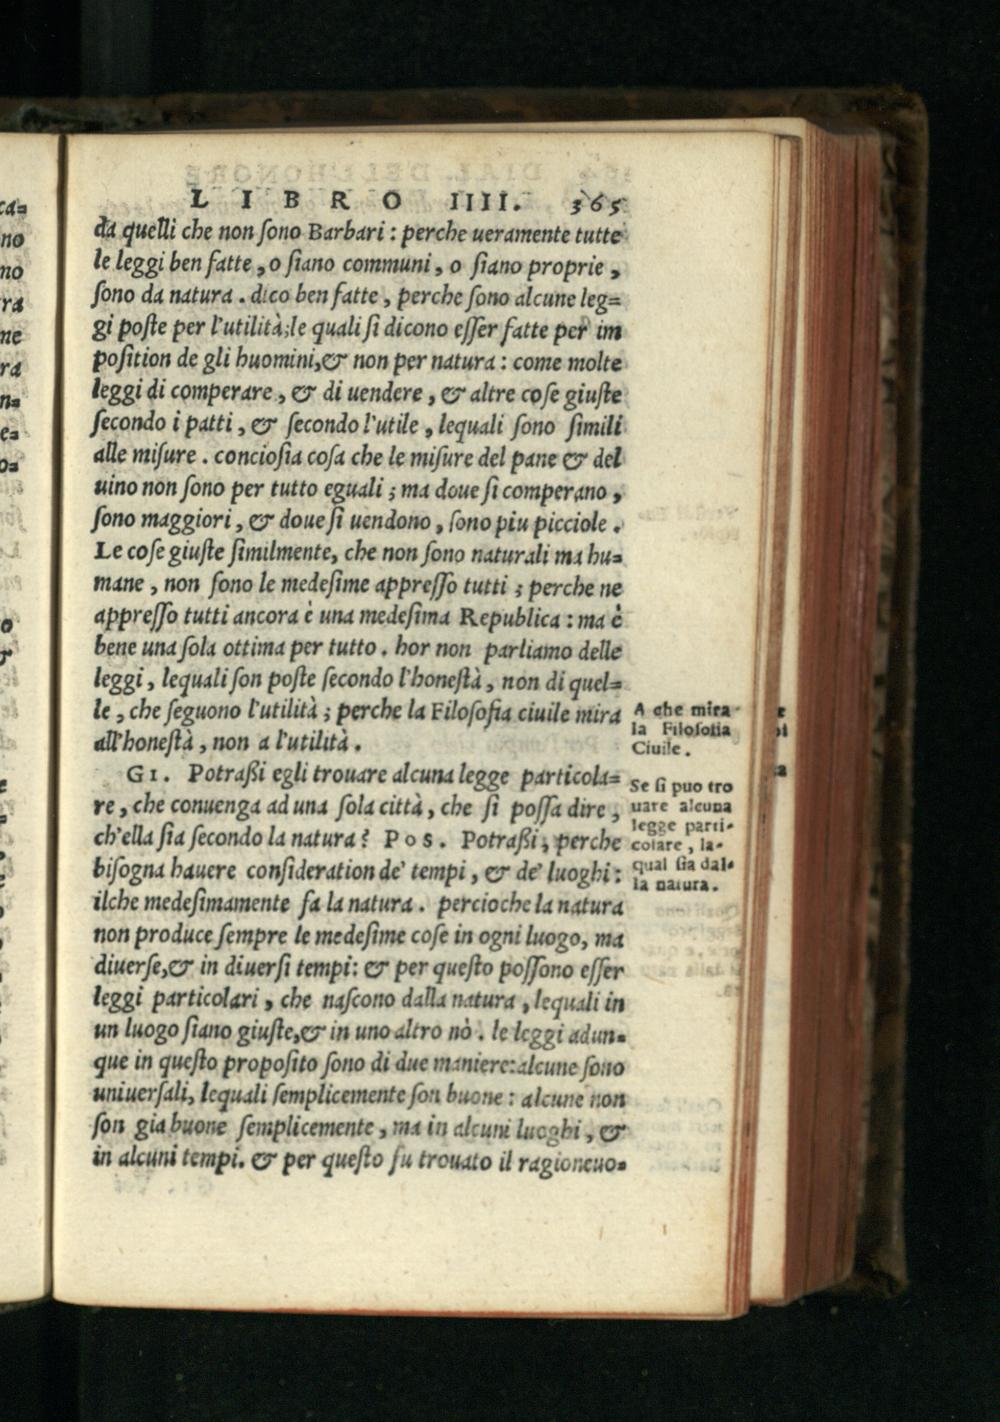 LIBRO IIII. 365
da quelli che non ſono Barbari : perche ueramente tutte
le leggi ben fatte , o ſiano communi , o ſiano proprie ,
ſono da natura . dico ben fatte , perche ſono alcune leg=
gi poſte per l'utilità; le quali ſi dicono eſſer fatte per im
poſition de gli huomini, & non per natura : come molte
leggi di comperare , & di uendere , & altre coſe giuſte
ſecondo i patti , & ſecondo l'utile , lequali ſono ſimili
alle miſure . concioſia coſa che le miſure del pane & del
uino non ſono per tutto eguali ; ma doue ſi comperano ,
ſono maggiori , & doue ſi uendono , ſono piu picciole .
Le coſe giuſte ſimilmente, che non ſono naturali ma hu=
mane , non ſono le medeſime appreſſo tutti ; perche ne
appreſſo tutti ancora è una medeſima Republica : ma è
bene una ſola ottima per tutto . hor non parliamo delle
leggi , lequali ſon poſte ſecondo l'honeſtà , non di quel=
le , che ſeguono l'utilità ; perche la Filoſofia ciuile mira
all'honeſtà , non a l'utilità .
A che mira
la Filoſofia
Ciuile .
GI . Potraßi egli trouare alcuna legge particola=
re , che conuenga ad una ſola città , che ſi poſſa dire ,
ch'ella ſia ſecondo la natura ? POS . Potraßi ; perche
biſogna hauere conſideration de' tempi , & de' luoghi :
ilche medeſimamente fa la natura . percioche la natura
non produce ſempre le medeſime coſe in ogni luogo, ma
diuerſe, & in diuerſi tempi : & per queſto poſſono eſſer
leggi particolari , che naſcono dalla natura , lequali in
un luogo ſiano giuſte, & in uno altro nò . le leggi adun=
que in queſto propoſito ſono di due maniere: alcune ſono
uniuerſali, lequali ſemplicemente ſon buone : alcune non
ſon gia buone ſemplicemente , ma in alcuni luoghi , &
in alcuni tempi. & per queſto fu trouato il ragioneuo=
Se ſi puo tro
uare alcuna
legge parti-
colare , la-
qual ſia dal-
la natura .